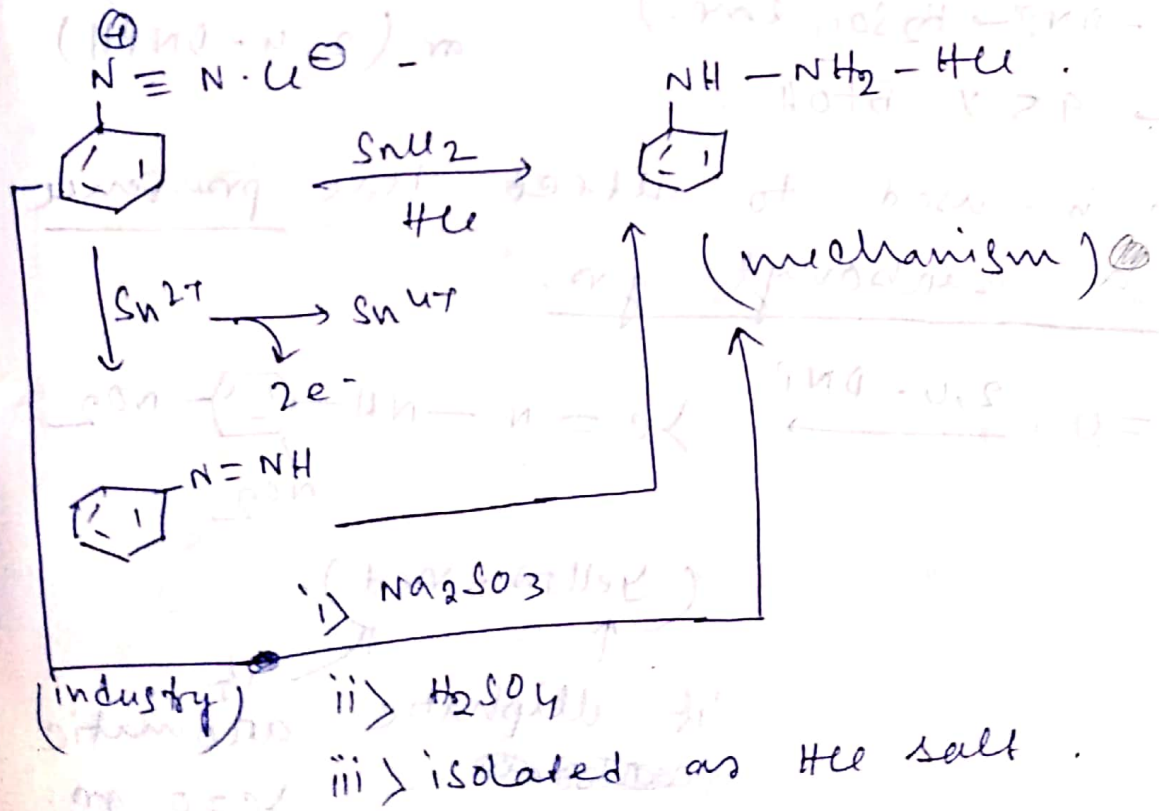 ⊕
N ≡ N · Cl⊖ -
NH - NH2 - HCl .
SnCl2
HCl
(mechanism)
Sn2+ → Sn4+
2e-
N = NH
i> Na2SO3
(industry)
ii> H2SO4
iii> isolated as HCl salt .